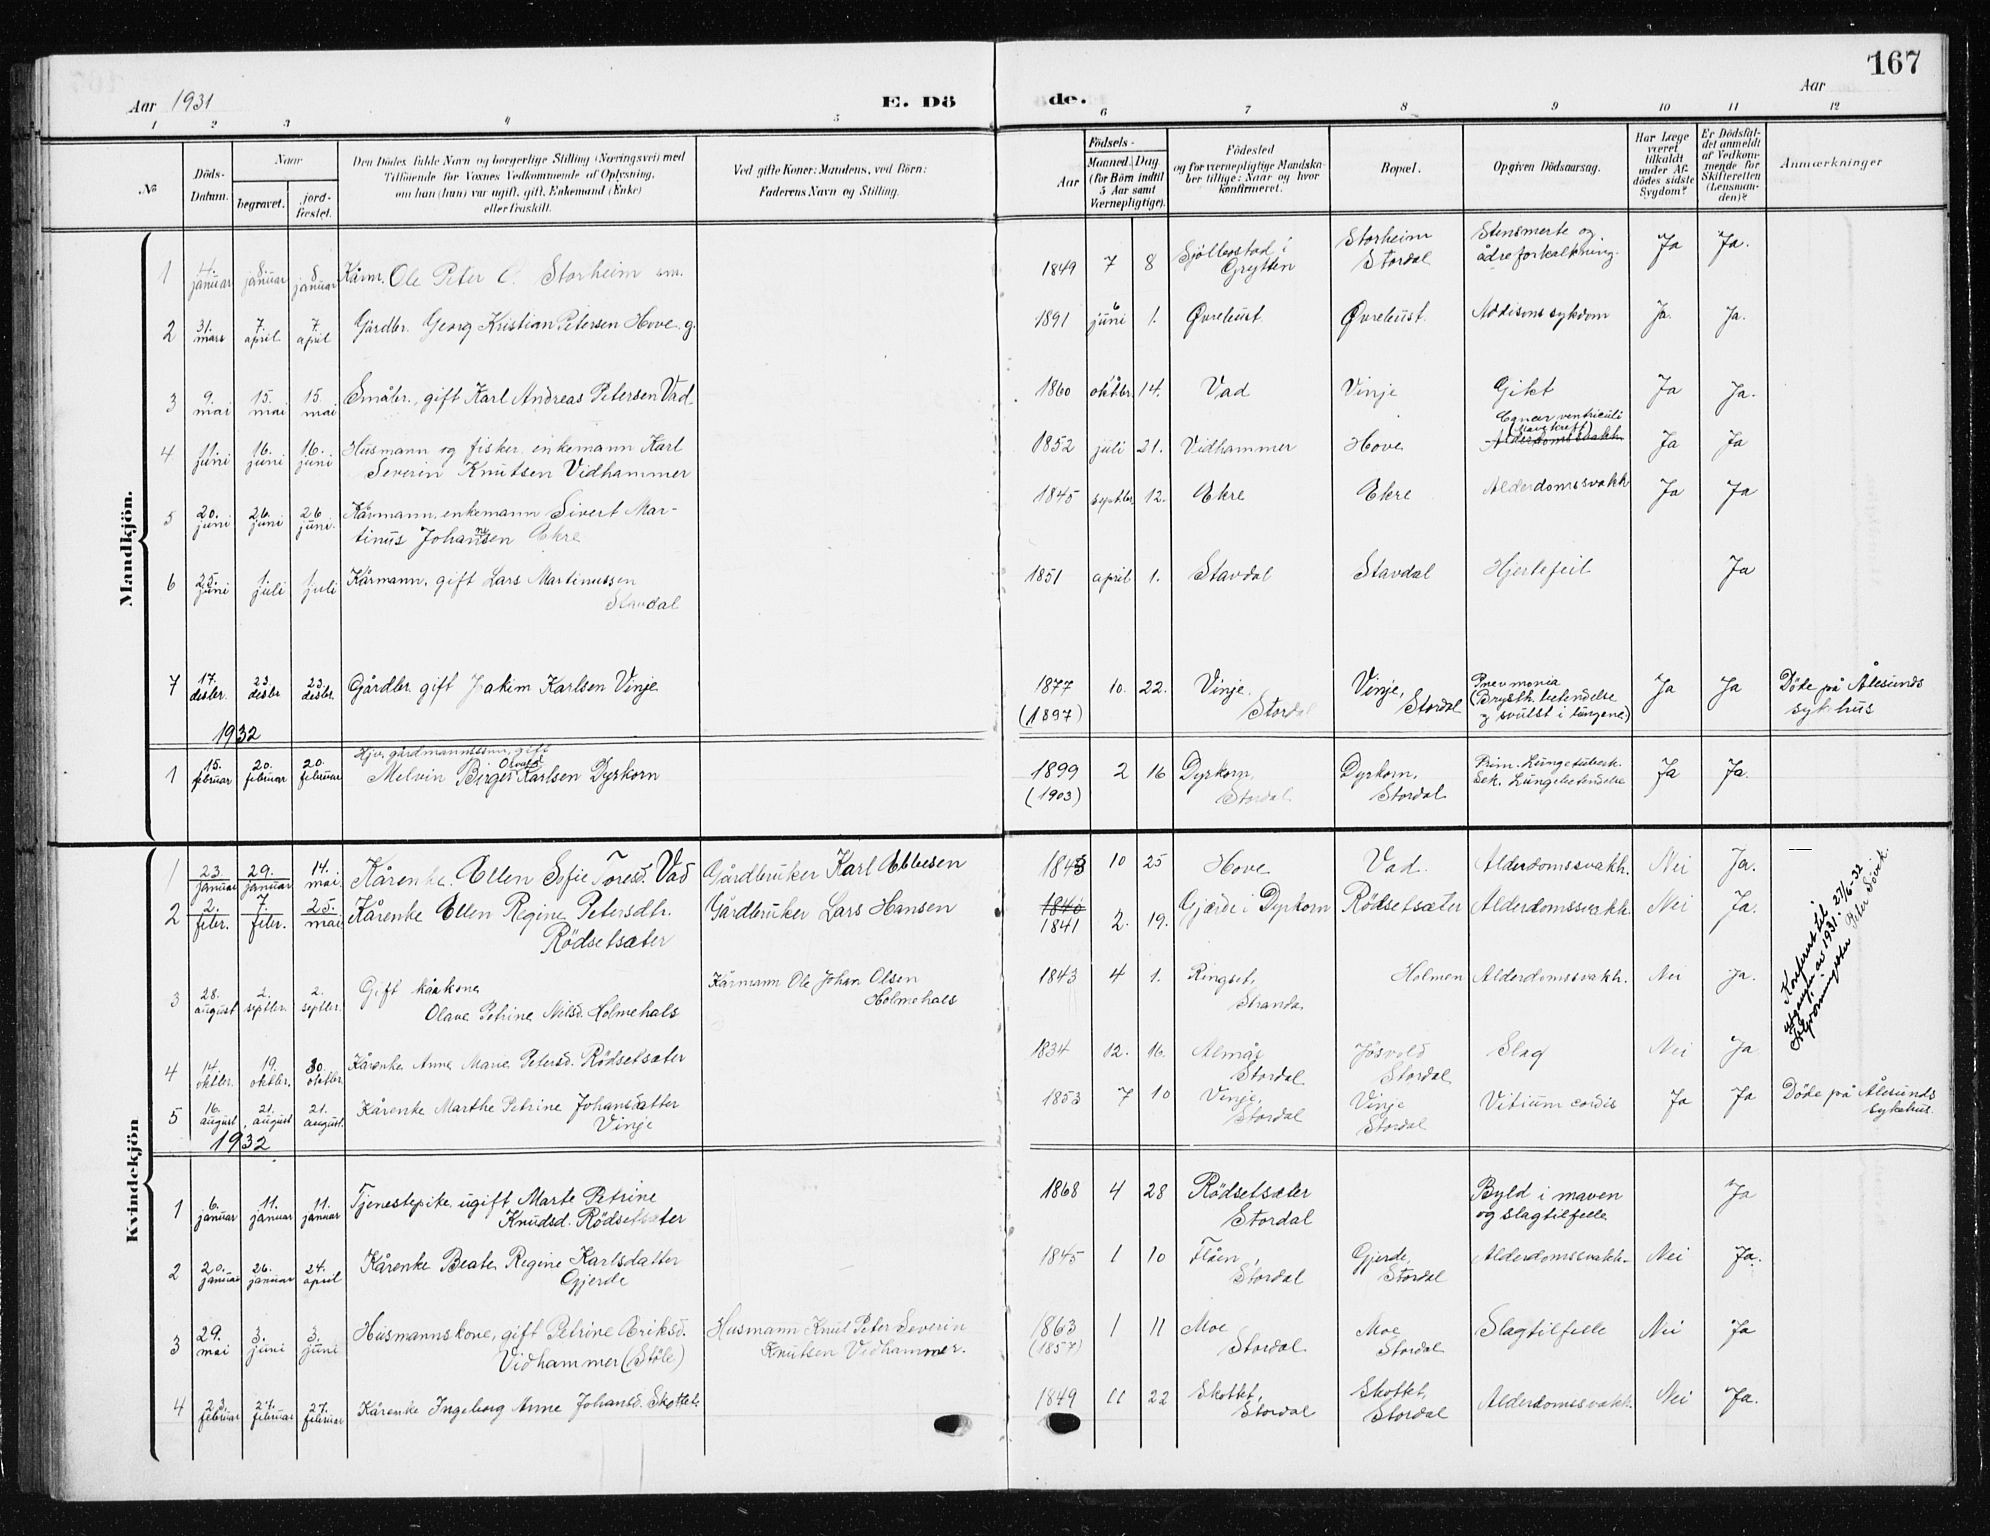 167
Aar 1931
E. Dö
de.
Aar
1 2 3 4 5 6 7 8 9 10 11 12
No
Döds-Datum.
Naar
begravet.
jord-fæstet.
Den Dödes fulde Navn og borgerlige Stilling (Næringsvei) med
Tilföiende for Voxnes Vedkommende af Oplysning,
om han (hun) var ugift, gift, Enkemand (Enke)
eller fraskilt.
Ved gifte Koner: Mandens, ved Börn:
Faderens Navn og Stilling.
Födsels-
Aar
Maaned. Dag
(for Börn indtil
5 Aar samt
Værnepligtige).
Födested
og for værnepligtige Mandska-
ber tillige: Naar og hvor
konfirmeret.
Bopæl.
Opgiven Dödsaarsag.
Har Læge
været
tilkaldt
under Af-
dödes sidste
Sygdom?
Er Dödsfal-
det anmeldt
af Vedkom-
mende for
Skifteretten
(Lensman-
den)?
Anmærkninger
Mandkjön.
1 4. januar 8 januar 8 januar Kårm. Ole Peter O. Storheim em. 1849 7 8 Grytten Storheim Stordal Stensmerte og ådreforkalkning. Ja Ja.
2 31. mars 7. april 7. april Gårdbr. Georg Kristian Petersen Hove. g. 1891 6 juni 1. Øvrebust. Øvrebust. Addisons sykdom Ja. Ja.
3 9. mai 15. mai 15. mai Småbr., gift Karl Andreas Petersen Vad. 1860 oktbr. 14. Vad Vinje Gikt Ja Ja.
4 11. juni 16. juni 16. juni Husmann og fisker, enkemann Karl
Severin Knutsen Vidhammer 1852 juli 21. Vidhammer Hove Cancer ventriculi
Alderdomssvakh. Ja Ja
5 20. juni 26. juni 26 juni. Kårmann, enkemann Sivert Mar-
tinus Johannesen Ekre 1845 septbr. 12. Ekre Ekre Alderdomssvakh Ja Ja
6 25. juni 1. juli 1. juli Kårmann, gift Lars Martinussen
Stavdal 1851 april 1. Stavdal Stavdal Hjertefeil Ja
7 17. desbr. 23. desbr 23. desbr. Gårdbr. gift Joakim Karlsen Vinje 1877 (1897) 10. 22. Vinje, Stordal Vinje, Stordal Pneumonia
(Brysth. betendelse
og svulst i lungene) Ja Ja Döde på Ålesunds
sykehus
1932
1 15. februar 20. februar 20. februar Hjv. gårdmannssønn, gift
Melvin Birger Osvald Karlsen Dyrkorn 1899 (1903) 2 16 Dyrkorn, Stordal Dyrkorn, Stordal Prim. Lungetuberk.
Sek. Lungebetendelse Ja Ja.
Kvindekjön
1 23. januar 29. januar 14. mai Kårenke. Ellen Sofie Toresd. Vad Gårdbruker Karl Ebbesen 1843 10 25 Hove Vad. Alderdomssvakh. Nei Ja.
2 2. febr. 7. febr. 25. mai Kårenke Ellen Regine Petersdtr.
Rödsetsæter Gårdbruker Lars Hansen 1840 1841 2. 19. Gjærde i Dyrkorn Rödsetsæter Alderdomssvakh. Nei Ja.
3 28. august 2. septbr. 2. septbr. Gift kårkone
Olave Petrine Nilsd. Holmehals Kårmann Ole Johan Olsen
Holmehals 1843 4 1. Ringset, Stranda Holmen Alderdomssvakh. Nei Ja.
4 14. oktbr. 19. oktbr. 30. oktbr. Kårenke Anne Marie Petersd. Rödsetsæter 1834 12. 16. Almås Stordal Jösvold Stordal Slag Nei Ja
5 16. august 21. august 21. august. Kårenke Marthe Petrine Johansdatter
Vinje 1853 7 10 Vinje, Stordal Vinje Stordal Vitium cordis Ja Ja Döde på Ålesunds
sykehus.
Konferert til
utgangen av 1931. 27/6-32
Peter Sövik.
1932
1 6. januar 11. januar 11. januar Tjenestepike, ugift Marte Petrine
Knudsd. Rödsetsæter 1868 4 28 Rödsetsæter Stordal Byld i maven
og slagtilfelle Ja
2 20. januar 26. januar 24. april Kårenke Beate Regine Karlsdatter
Gjerde 1845 1 10 Flåen, Stordal Gjerde, Stordal Alderdomssvakh. Nei Ja.
3 29. mai 3. juni 3. juni Husmannskone, gift Petrine Eriksd.
Vidhammer (Støle) Husmann Knut Peter Severin
Knutsen Vidhammer. 1863 (1857) 1 11 Moe Stordal Moe Stordal Slagtilfelle Nei Ja
4 23. februar 27. februar 27. februar Kårenke Ingeborg Anne Johansd. Skottet 1849 11 22 Skottet, Stordal Skottet, Stordal Alderdomssvakh. Nei Ja.